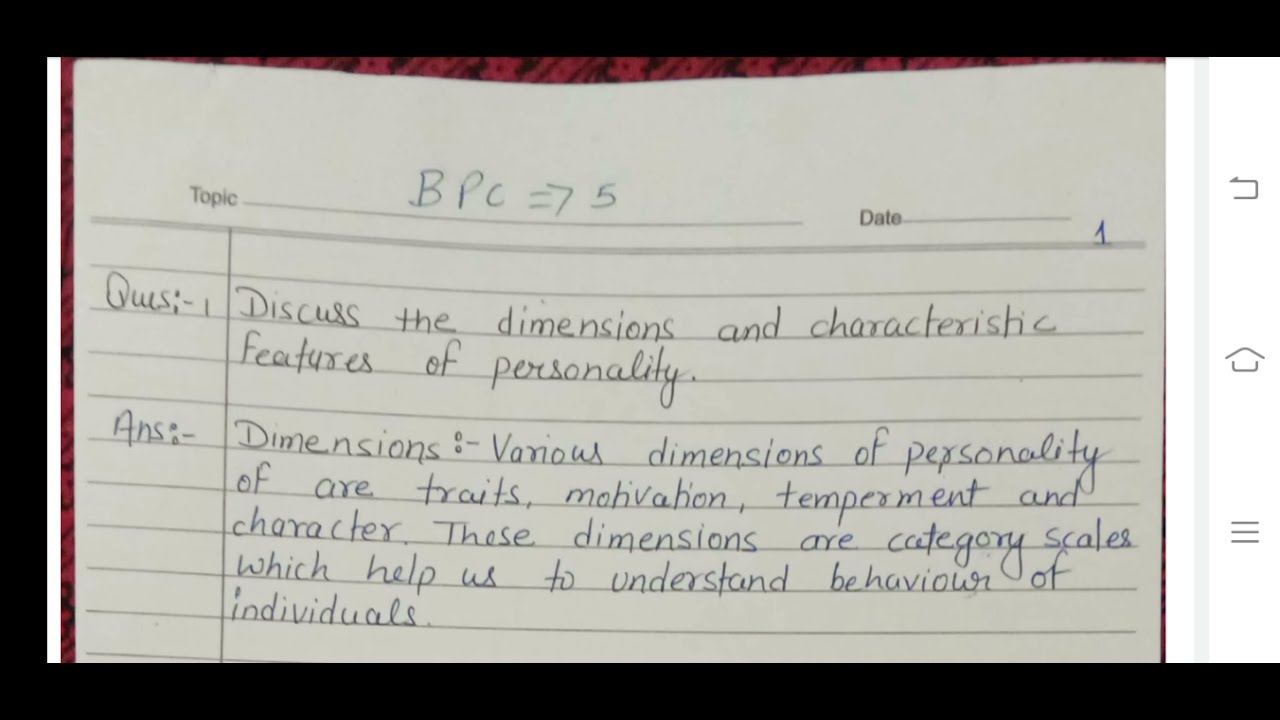 Topic BPC => 5 Date
1
Ques:- 1 Discuss the dimensions and characteristic
features of personality.
Ans:- Dimensions:- Various dimensions of personality
of are traits, motivation, temperment and
character. These dimensions are category scales
which help us to understand behaviour of
individuals.